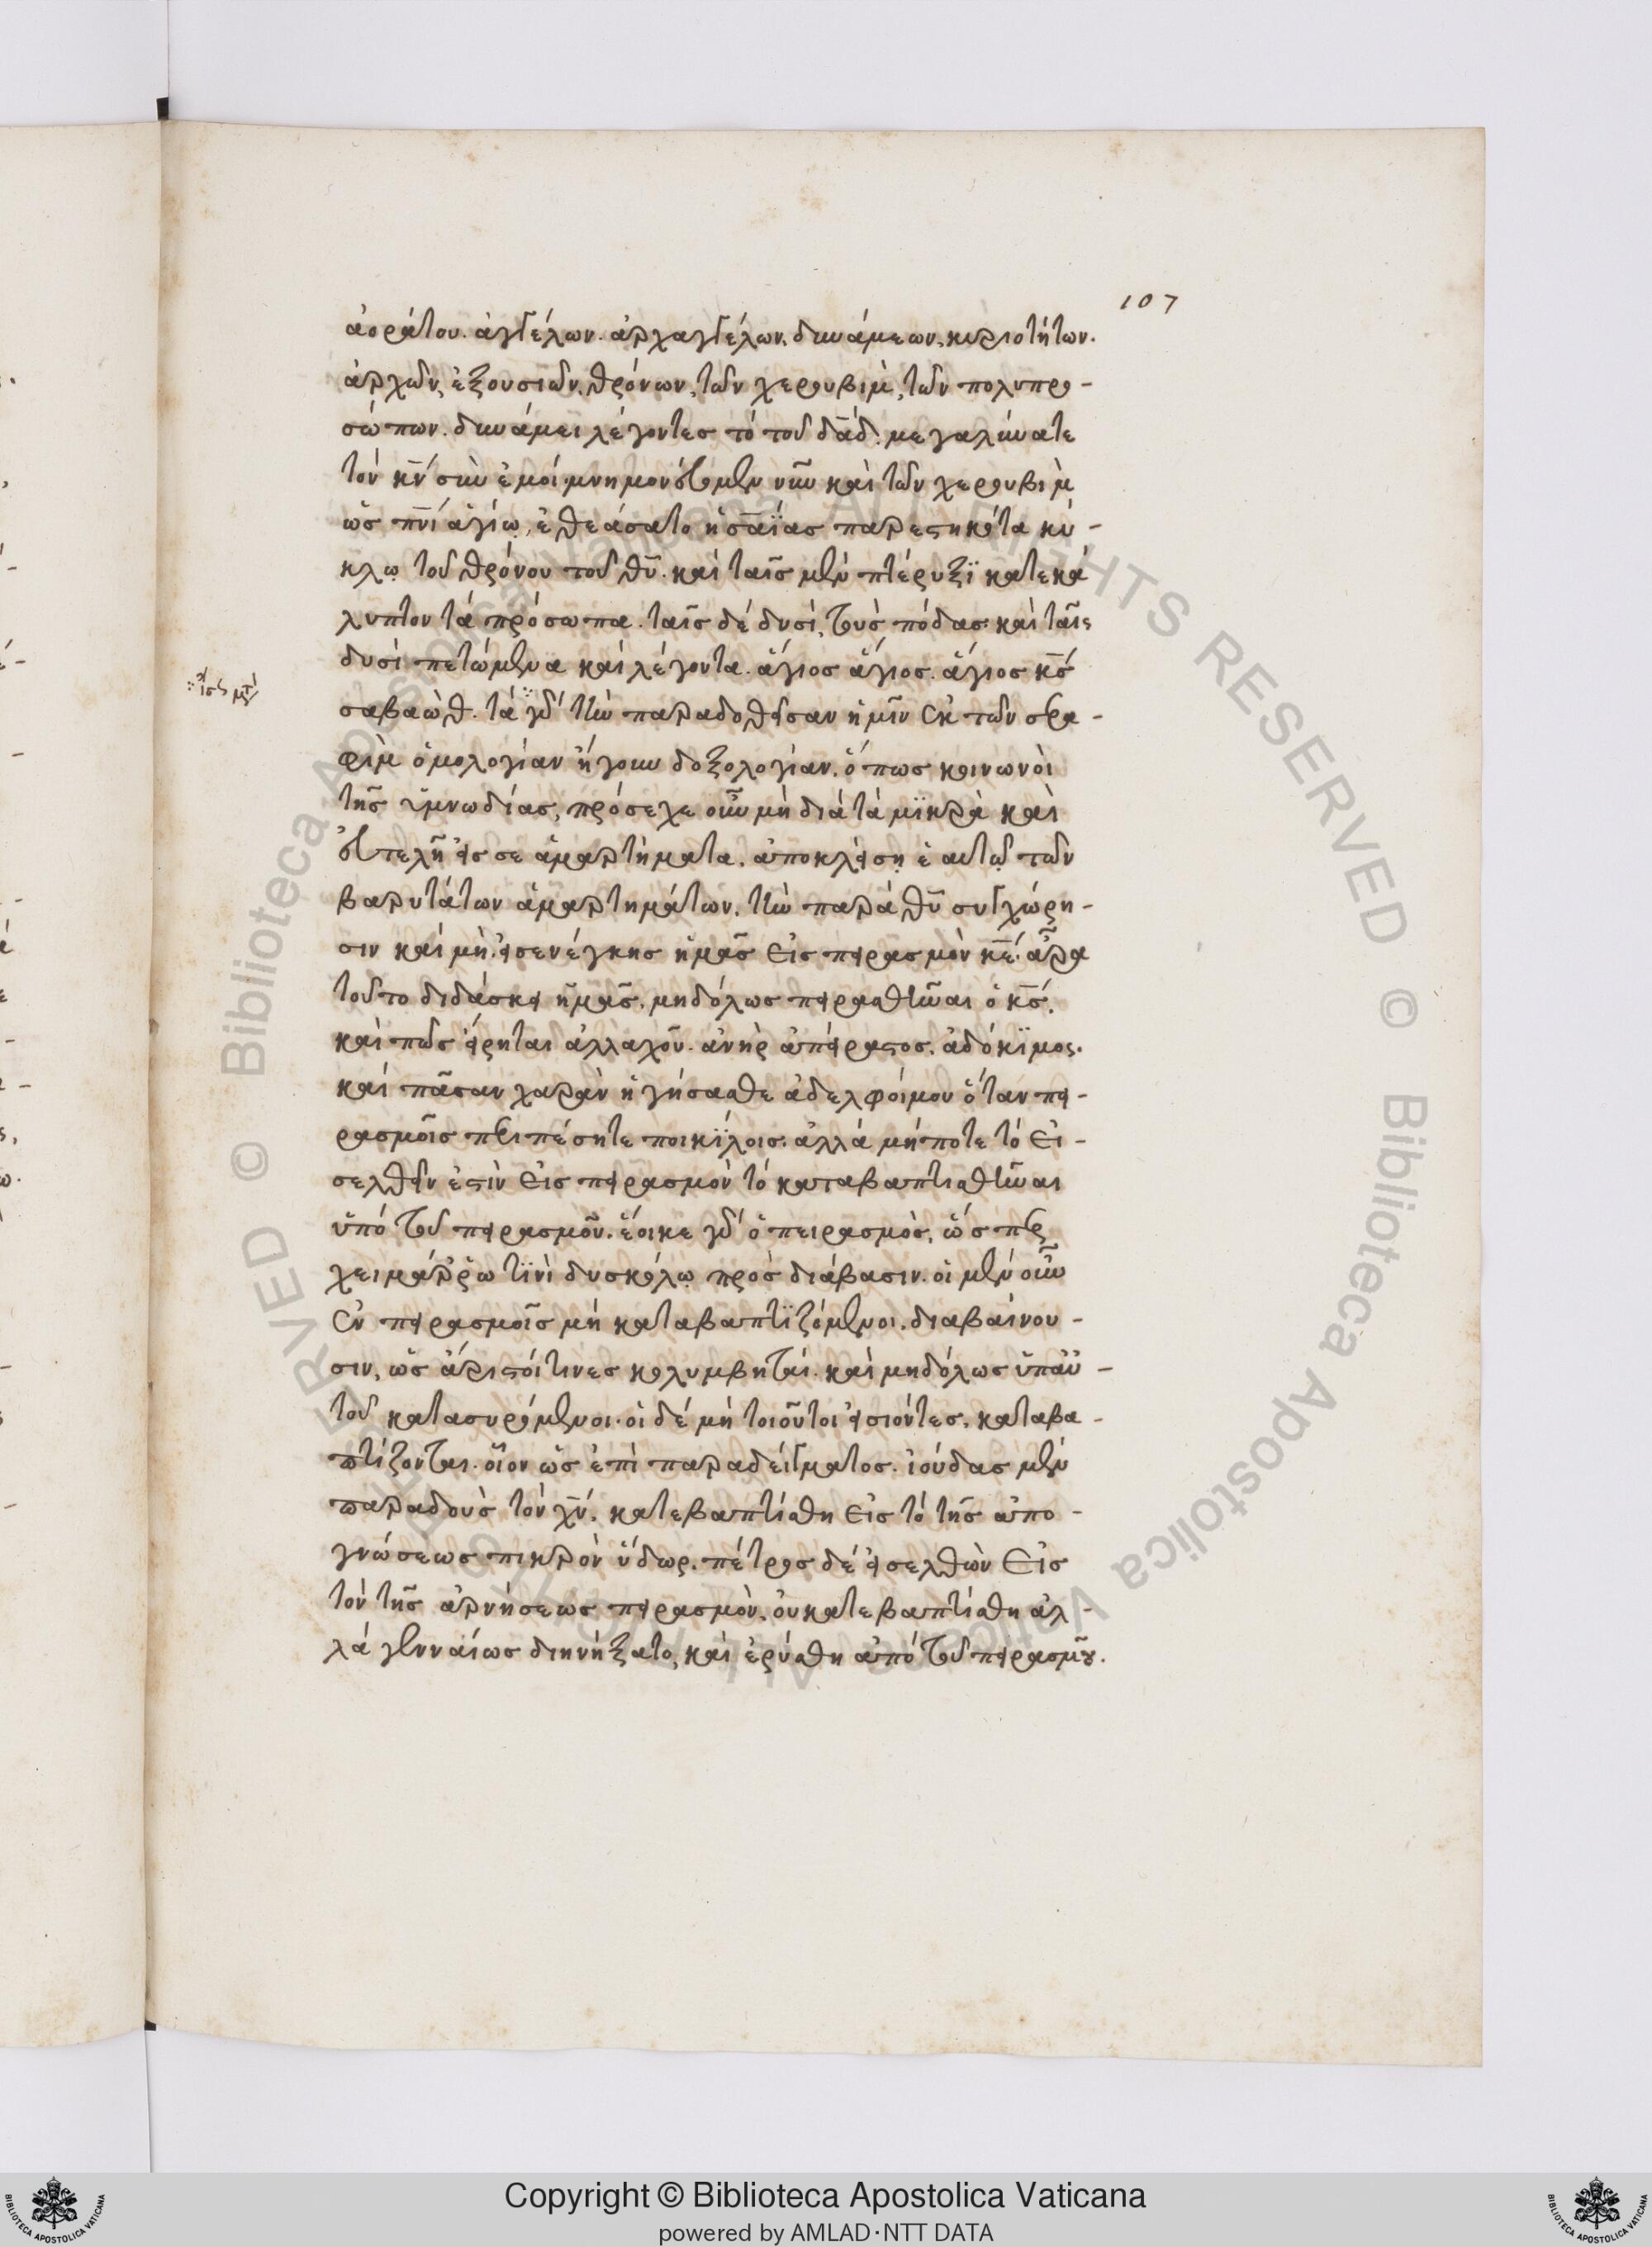 107
ἀοράτου. ἀγγέλων. ἀρχαγγέλων. δυνάμεων, κυριοτήτων.
ἀρχῶν, ἐξουσιῶν, θρόνων, τῶν χερουβὶμ, τῶν πολυπρο-
σώπων. δυνάμει λέγοντες τὸ τοῦ δᾱδ. μεγαλύνατε
τὸν κ̅ν̅ σὺν ἐμοί. μνημονεύομεν νῦν καὶ τῶν χερουβὶμ
ὡς π̅ν̅ι ἁγίω, ἐθεάσατο ἡσαΐας παρεστηκότα κύ-
κλω τοῦ θρόνου τοῦ θ̅υ̅. καὶ ταῖς μὲν πτέρυξϊ κατεκά
λυπτον τὰ πρόσωπα. ταῖς δὲ δυσὶ, τοὺς πόδας. καὶ ταῖς
δυσὶ πετώμενα καὶ λέγοντα. ἅγιος ἅγιος. ἅγιος κ̅ς̅
σαβαώθ. τὰ γὰρ τὴν παραδοθεῖσαν ἡμῖν ἐκ τῶν σερα-
φὶμ ὁμολογίαν ἤγουν δοξολογίαν. ὅπως κοινωνοὶ
τῆς ὑμνωδίας, πρόσεχε οὖν μὴ διὰ τὰ μϊκρὰ καὶ
εὐτελῆ εἴς σε ἁμαρτήματα. ἀποκλείση ἑαυτῶ τῶν
βαρυτάτων ἁμαρτημάτων. τὴν παρὰ θ̅υ̅ συγχώρη-
σιν καὶ μὴ εἰσενέγκης ἡμᾶς εἰς πειρασμὸν κ̅ε̅. ἆρα
τοῦτο διδάσκει ἡμᾶς. μηδόλως πειρασθῆναι ὁ κ̅ς̅.
καὶ πῶς εἴρηται ἀλλαχοῦ. ἀνὴρ ἀπείραστος. ἀδόκϊμος.
καὶ πᾶσαν χαρὰν ἡγήσασθε ἀδελφοίμου ὅταν πει-
ρασμοῖς περιπέσητε ποικΐλοις. ἀλλὰ μήποτε τὸ εἰ-
σελθεῖν ἐστὶν εἰς πειρασμὸν τὸ καταβαπτισθῆναι
ὑπὸ τοῦ πειρασμοῦ. ἔοικε γὰρ ὁ πειρασμὸς, ὥσπερ
χειμάρρω τϊνὶ δυσκόλω πρὸς διάβασιν. οἱ μὲν οὖν
ἐν πειρασμοῖς μὴ καταβαπτϊζόμενοι. διαβαίνου-
σιν, ὡς ἄριστοίτινες κολυμβηταί. καὶ μηδόλως ὑπαὐ-
τοῦ κατασυρόμενοι. οἱ δὲ μὴ τοιοῦτοι εἰσιόντες. καταβα-
πτίζονται. οἷον ὡς ἐπὶ παραδείγματος. ἰούδας μὲν
παραδοὺς τὸν χ̅ν̅. κατεβαπτίσθη εἰς τὸ τῆς ἀπο-
γνώσεως πικρὸν ὕδωρ. πέτρος δὲ εἰσελθὼν εἰς
τὸν τῆς ἀρνήσεως πειρασμὸν, οὐ κατεβαπτίσθη ἀλ-
λὰ γενναίως διηνήξατο, καὶ ἐρύσθη ἀπὸ τοῦ πειρασμοῦ.
Copyright © Biblioteca Apostolica Vaticana
powered by AMLAD·NTT DATA